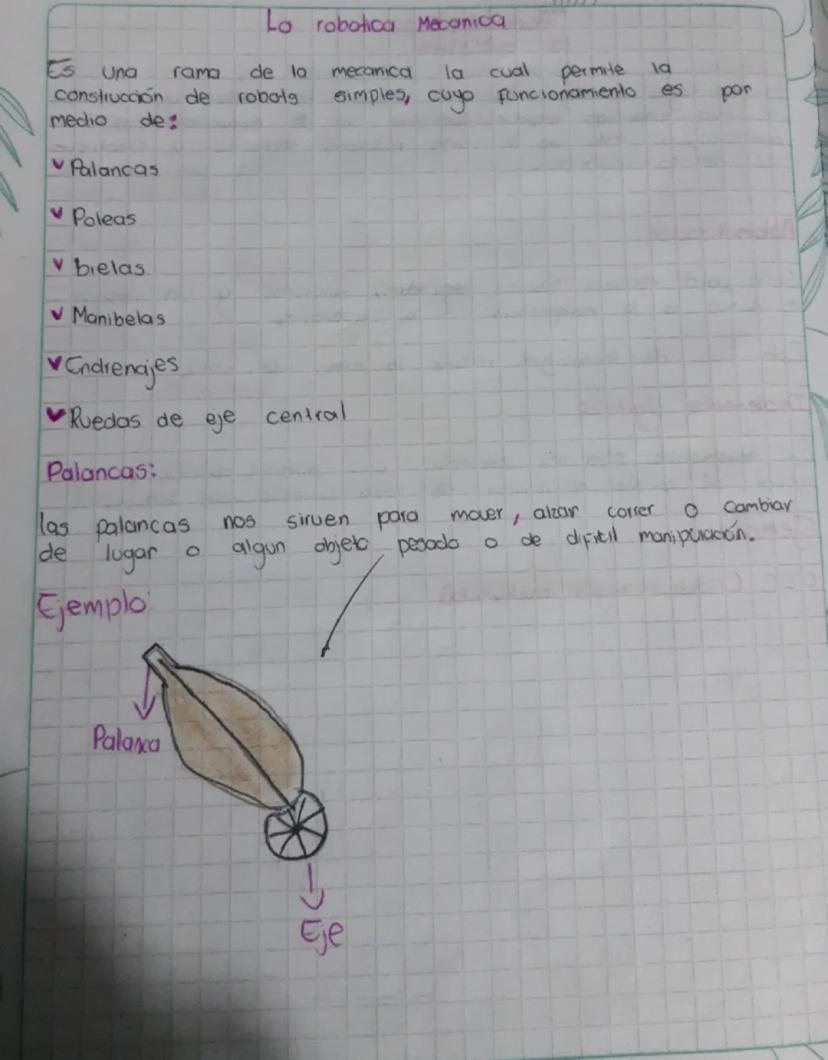 La robotica Mecanica
Es una rama de la mecanica la cual permite la
construcción de robots simples, cuyo funcionamiento es por
medio de:
Palancas
Poleas
bielas
Manibelas
Endrenajes
Ruedas de eje central
Palancas:
las palancas nos sirven para mover, alzar correr o cambiar
de lugar o algun objeto pesado o de dificil manipulación.
Ejemplo:
Palanca
Eje